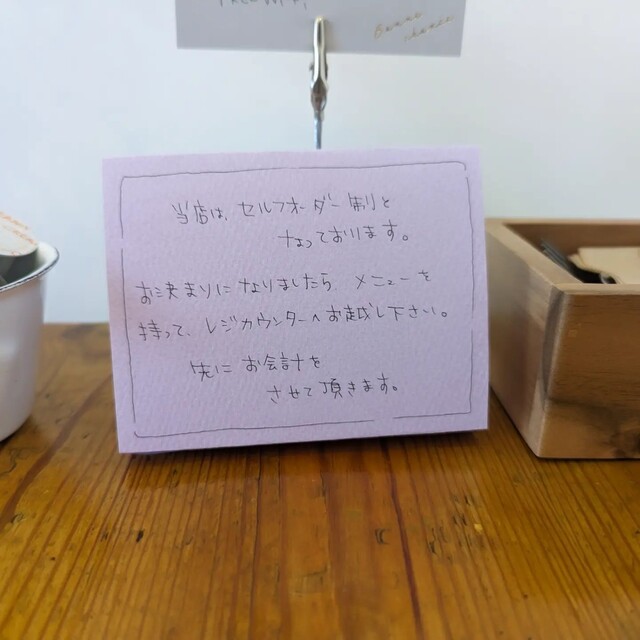 当店は、セルフオーダー制と
なっております。
お決まりになりましたら、メニューを
持って、レジカウンターへお越し下さい。
先に お会計を
させて頂きます。